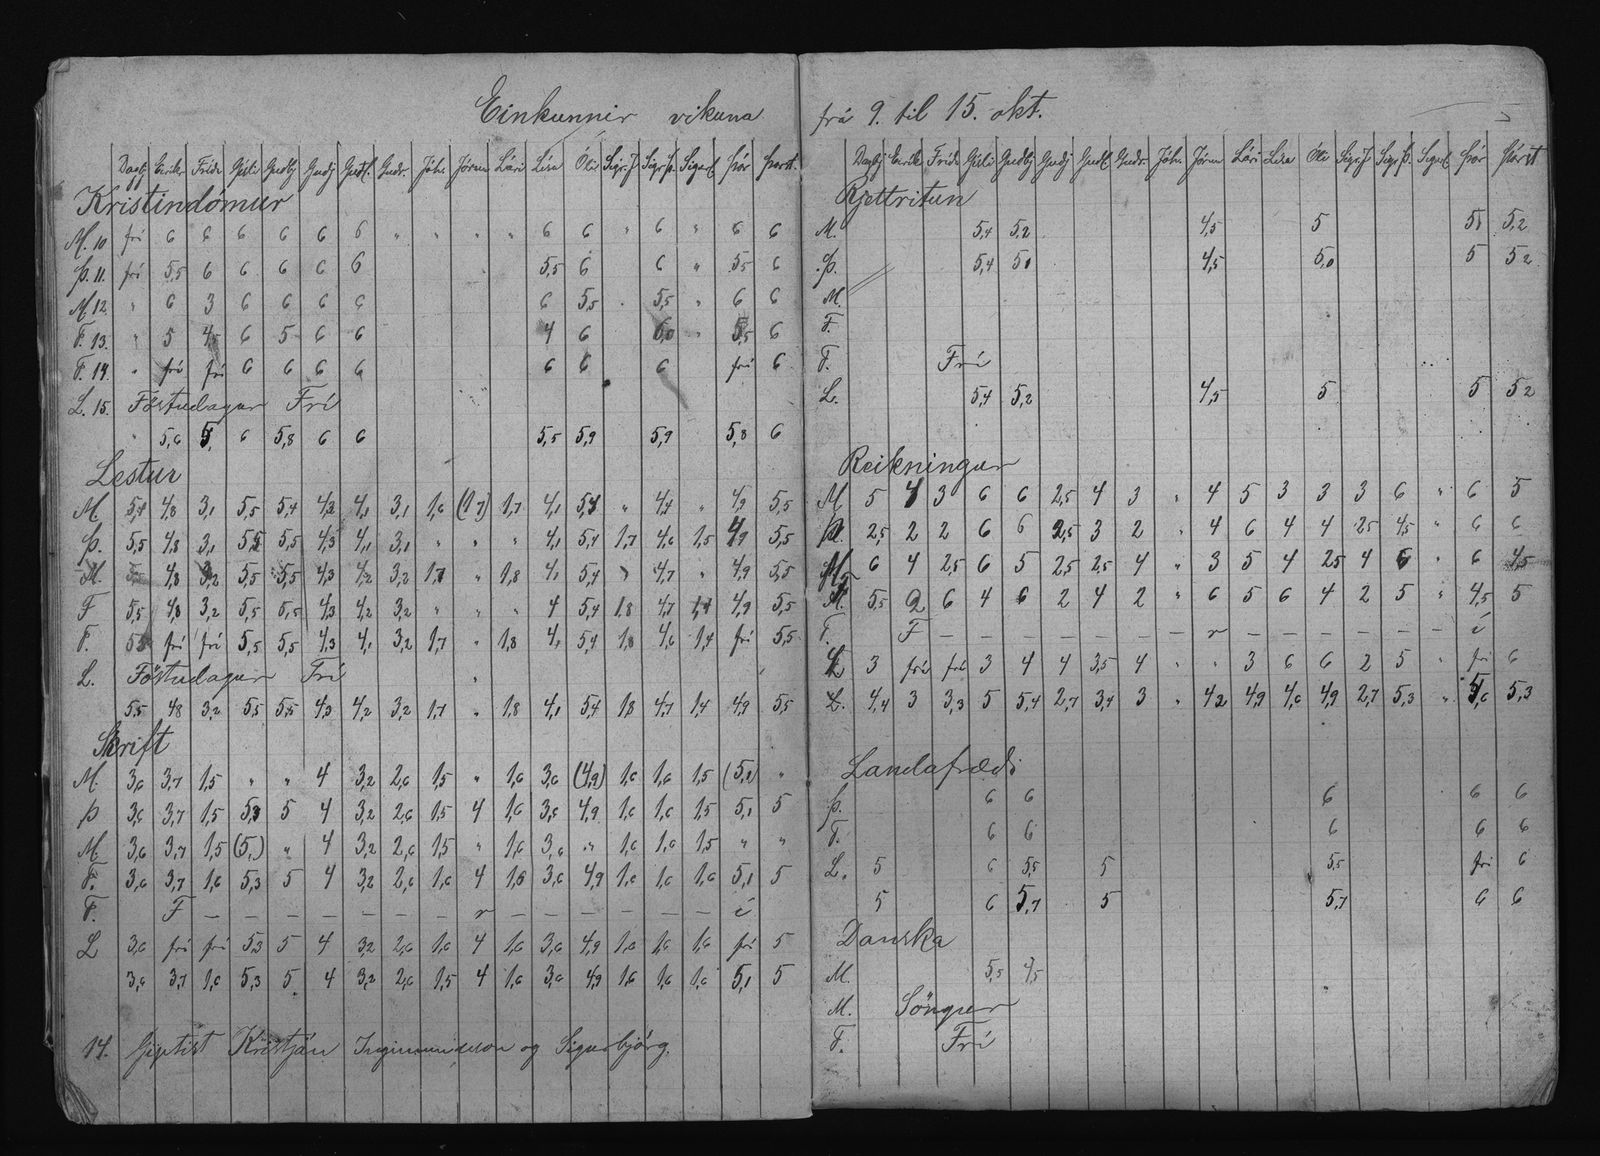 Einkunnir vikuna frá 9. til 15. okt.
Dagbj Eirik. Fríða Gísli Guðbj Guðj Guðl. Guðr. Jóh. Jórun Lári Lísa Óli Sigr.J Sigr.Þ. Sigurl Þór Þorst.
Kristindómur
M. 10 frí 6 6 6 6 6 6 " " " " 6 6 " 6 " 6 6
Þ. 11. frí 5,5 6 6 6 6 6 5,5 6 6 " 5,5 6
M. 12. " 6 3 6 6 6 6 6 5,5 . 5,5 " 6 6
F. 13. " 5 4,5 6 5 6 6 4 6 6,0 " 5,5 6
F. 14. " frí frí 6 6 6 6 6 6 6 frí 6
L. 15. Föstudagur Frí
" 5,6 5, 6 5,8 6 6 5,5 5,9 5,9 5,8 6
Lestur
M. 5,4 4,8 3,1 5,5 5,4 4,3 4,1 3,1 1,6 (1,7) 1,7 4,1 5,4 " 4,4 " 4,9 5,5
Þ. 5,5 4,8 3,1 5,5 5,5 4,3 4,1 3,1 " " " 4,1 5,4 1,7 4,6 1,5 4,9 5,5
M. 5,5 4,8 3,2 5,5 5,5 4,3 4,2 3,2 1,7 " 1,8 4,1 5,4 " 4,7 " 4,9 5,5
F 5,5 4,8 3,2 5,5 5,5 4,3 4,2 3,2 " " " 4 5,4 1,8 4,7 1,4 4,9 5,5
F. 5,5 frí frí 5,5 5,5 4,3 4,1 3,2 1,7 " 1,8 4,1 5,4 1,8 4,6 1,4 frí 5,5
L. Föstudagur Frí
5,5 4,8 3,2 5,5 5,5 4,3 4,2 3,2 1,7 " 1,8 4,1 5,4 1,8 4,7 1,4 4,9 5,5
Skrift
M. 3,6 3,7 1,5 " " 4 3,2 2,6 1,5 " 1,6 3,6 (4,9) 1,6 1,6 1,5 (5,1) "
Þ 3,6 3,7 1,5 5,3 5 4 3,2 2,6 1,5 4 1,6 3,6 4,9 1,6 1,6 1,5 5,1 5
M 3,6 3,7 1,5 (5,) " 4 3,2 2,6 1,5 " 1,6 3,6 " 1,6 1,6 1,5 " "
F. 3,6 3,7 1,6 5,3 5 4 3,2 2,6 1,6 4 1,6 3,6 4,9 1,6 1,6 1,6 5,1 5
F. F — — — — — — — r — — — — — — í
L 3,6 frí frí 5,3 5 4 3,2 2,6 1,6 4 1,6 3,6 4,9 1,6 1,6 1,6 frí 5
3,6 3,7 1,6 5,3 5 4 3,2 2,6 1,5 4 1,6 3,6 4,9 1,6 1,6 1,6 5,1 5
14. Giptist Kristján Ingimundsson og Sigurbjörg.
Dagbj Eirik Fríða Gísli Guðbj Guðj Guðl Guðr. Jóh. Jórun Lári Lísa Óli Sigr.J Sigr.Þ. Sigurl Þór Þorst
Rjettritun
M. 5,4 5,2 4,5 5 5, 5,2
Þ. 5,4 5,1 4,5 5,0 5 5,2
M.
F.
F. Frí
L. 5,4 5,2 4,5 5 5 5,2
Reikningur
M 5 4 3 6 6 2,5 4 3 " 4 5 3 3 3 6 " 6 5
Þ. 2,5 2 2 6 6 2,5 3 2 " 4 6 4 4 2,5 4,5 " 6 6
M. 6 4 2,5 6 5 2,5 2,5 4 " 3 5 4 2,5 4 6 " 6 4,5
F. 5,5 2 6 4 6 2 4 2 " 6 5 6 4 2 5 " 4,5 5
F. F — — — — — — — r — — — — — — í
L 3 frí frí 3 4 4 3,5 4 " " 3 6 6 2 5 " frí 6
L. 4,4 3 3,3 5 5,4 2,7 3,4 3 " 4,2 4,9 4,6 4,9 2,7 5,3 " 5,6 5,3
Landafræði
Þ. 6 6 6 6 6
F. 6 6 6 6 6
L. 5 6 5,5 5 5,5 frí 6
5 6 5,7 5 5,7 6 6
Danska
M. 5,5 4,5
M. Söngur
F. Frí